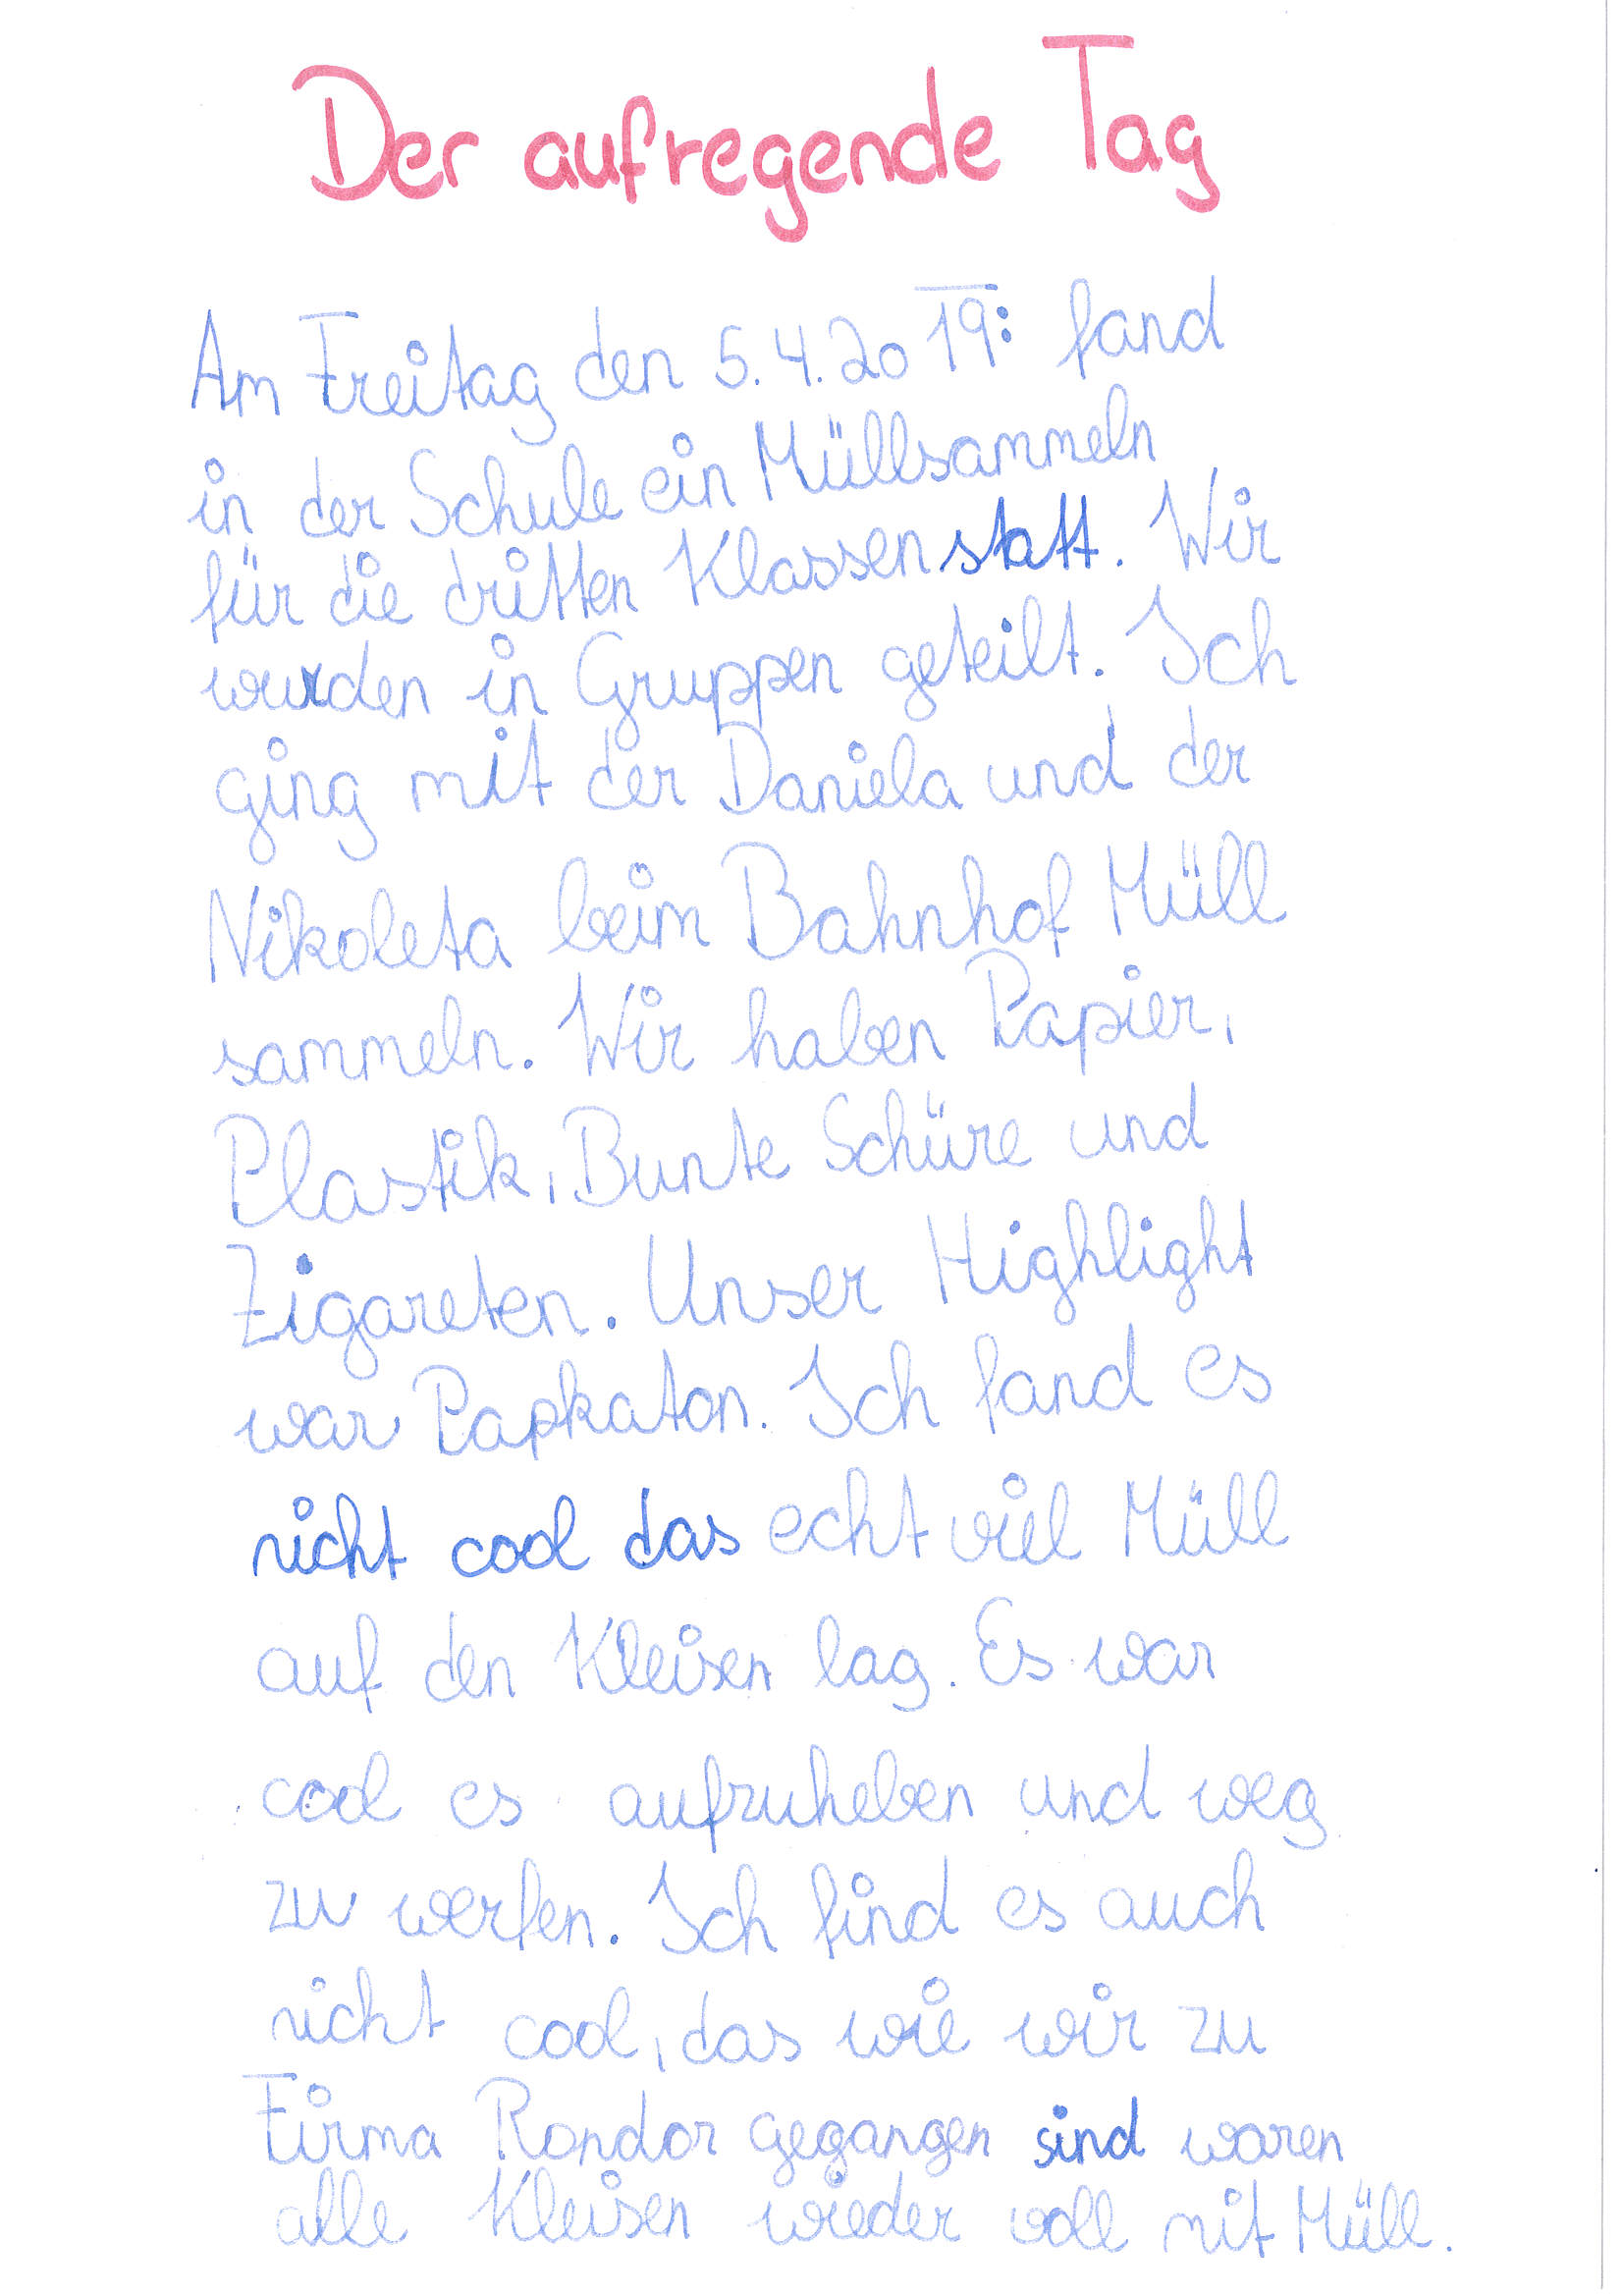 Der aufregende Tag
Am Freitag den 5.4.2019: fand
in der Schule ein Müllsammeln
für die dritten Klassen statt. Wir
wurden in Gruppen geteilt. Ich
ging mit der Daniela und der
Nikoleta beim Bahnhof Müll
sammeln. Wir haben Papier,
Plastik, Bunte Schüre und
Zigareten. Unser Highlight
war Papkaton. Ich fand es
nicht cool das echt viel Müll
auf den Kleisen lag. Es war
cool es aufzuheben und weg
zu werfen. Ich find es auch
nicht cool, das wie wir zu
Firma Rondor gegangen sind waren
alle Kleisen wieder voll mit Müll.